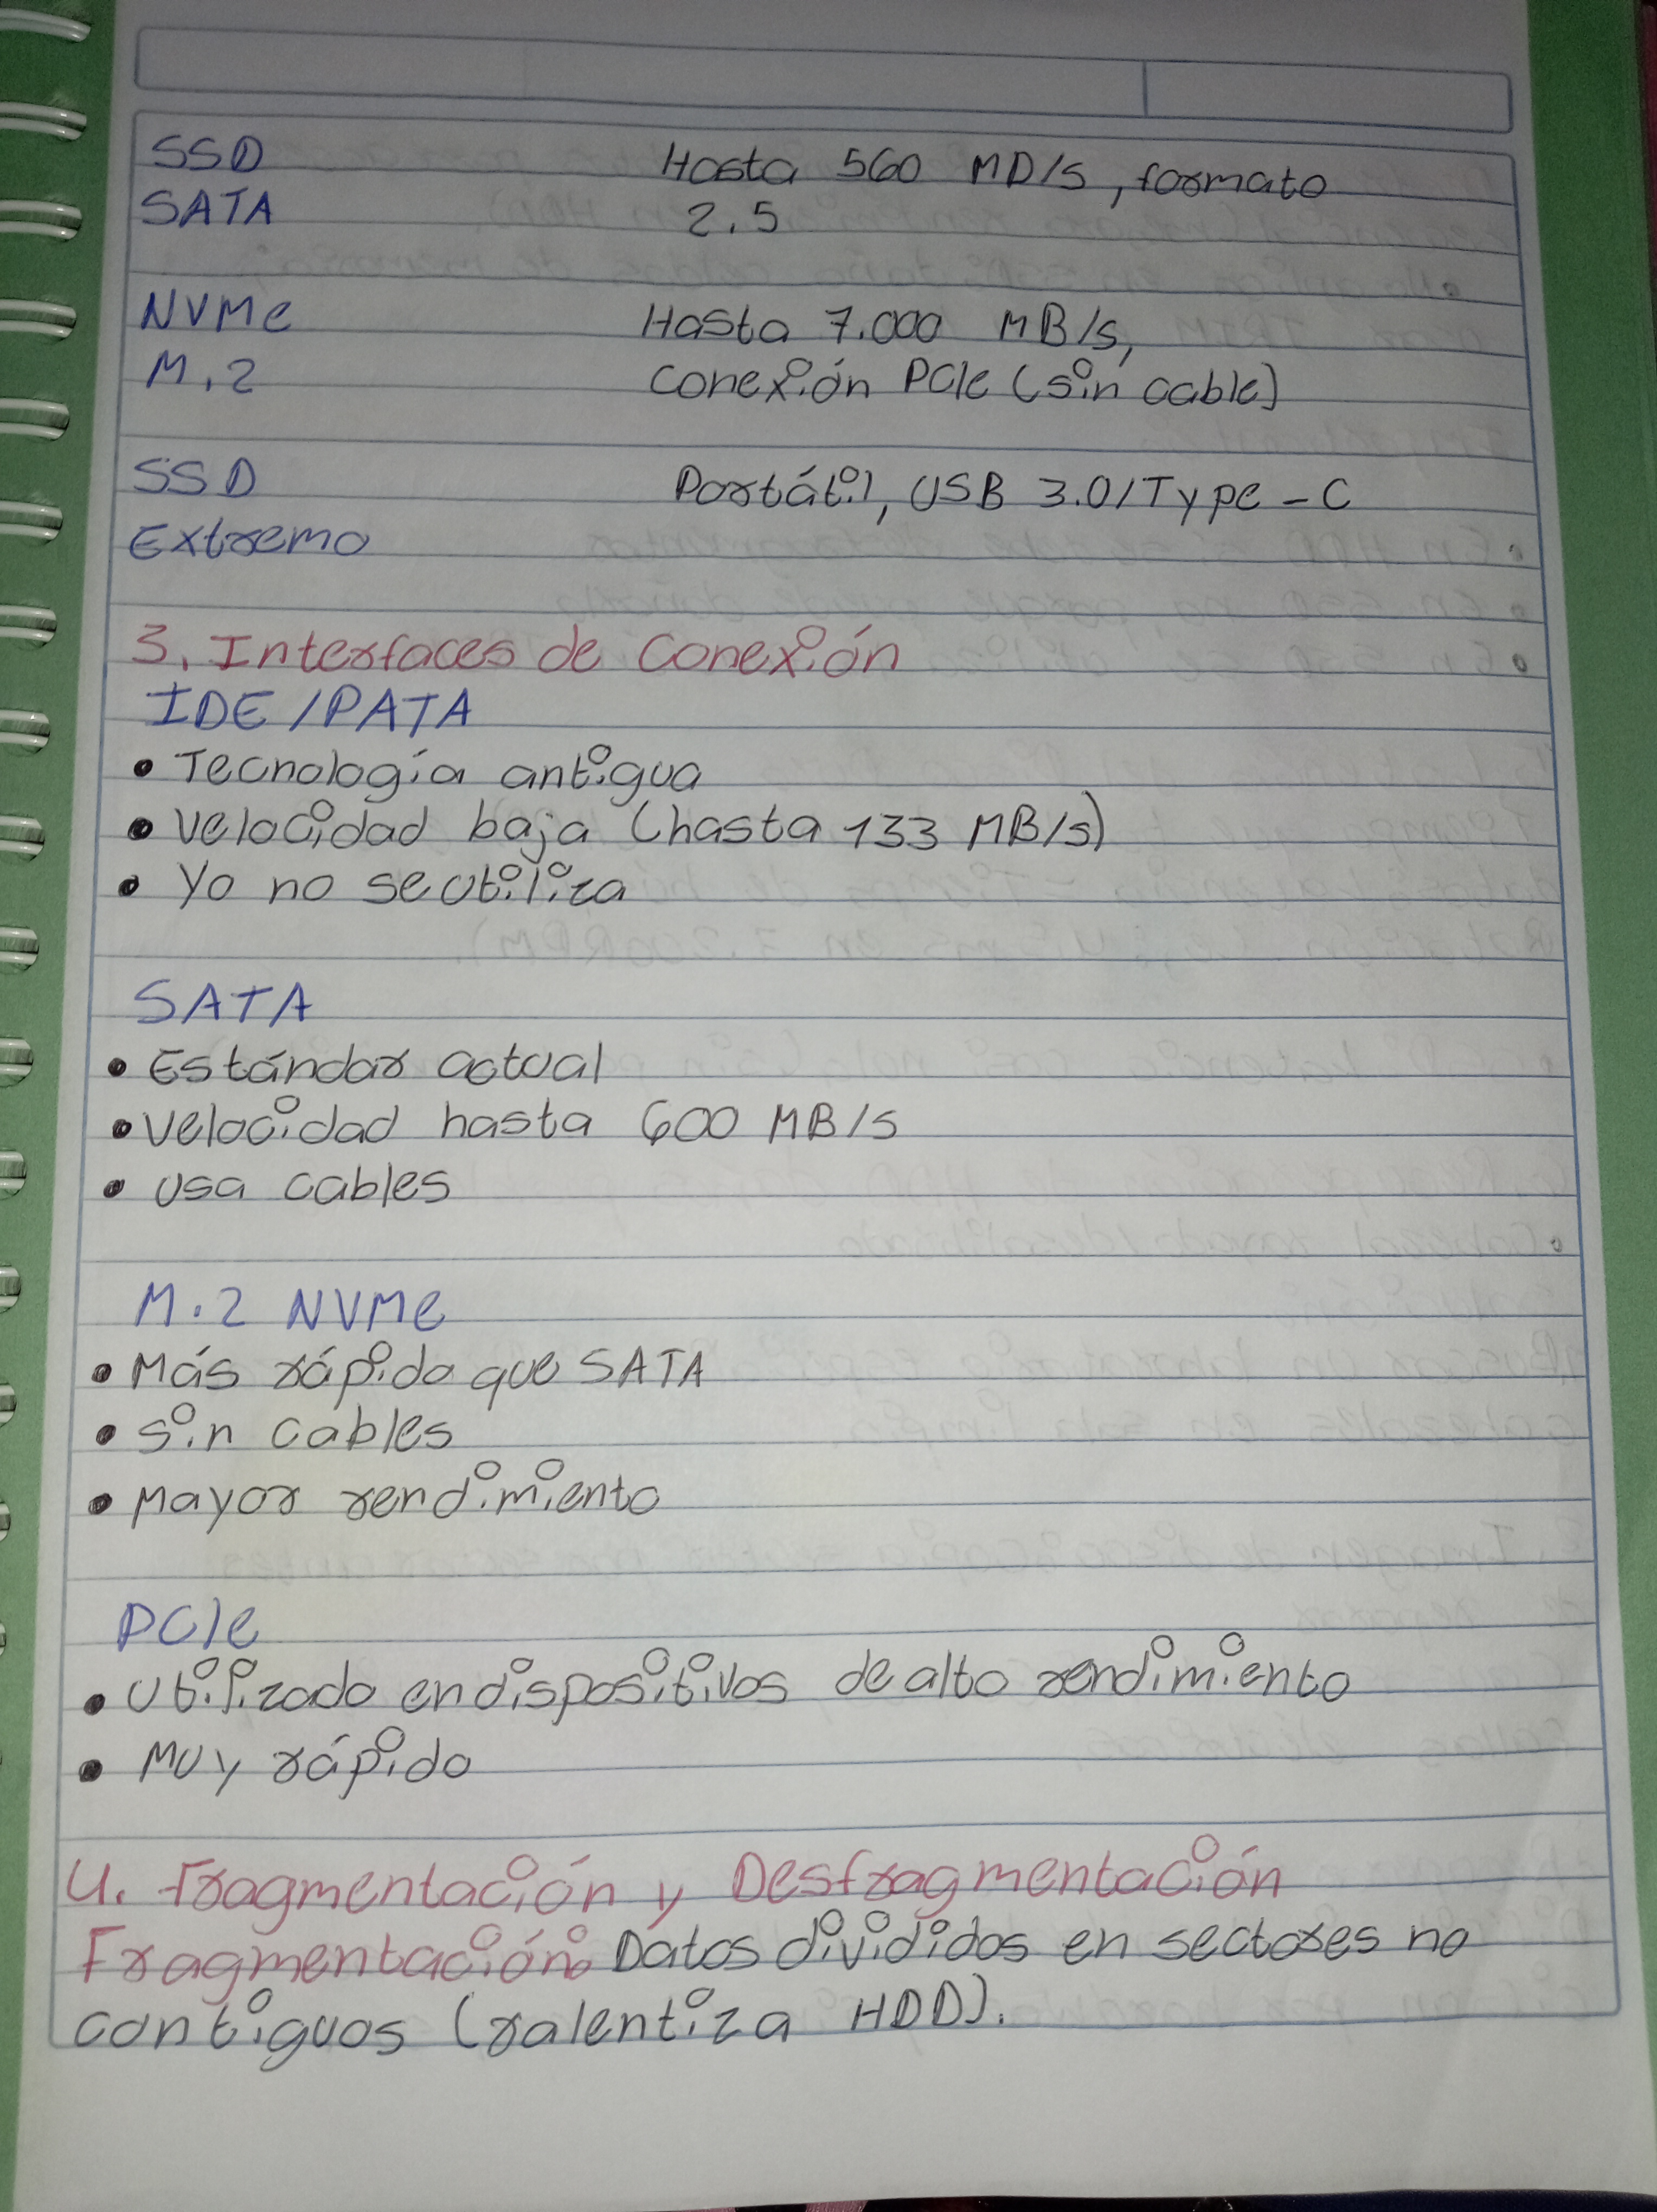 SSD Hasta 560 MD/s, formato
SATA 2.5
NVMe Hasta 7.000 MB/s,
M.2 conexión PCIe (sin cable)
SSD Portátil, USB 3.0/Type-C
Extremo
3. Interfaces de Conexión
IDE/PATA
• Tecnología antigua
• Velocidad baja (hasta 133 MB/s)
• Yo no se utiliza
SATA
• Estándar actual
• Velocidad hasta 600 MB/s
• usa cables
M.2 NVMe
• Más rápido que SATA
• sin cables
• Mayor rendimiento
PCIe
• Utilizado en dispositivos de alto rendimiento
• Muy rápido
4. Fragmentación y Desfragmentación
Fragmentación: Datos divididos en sectores no
contiguos (ralentiza HDD).